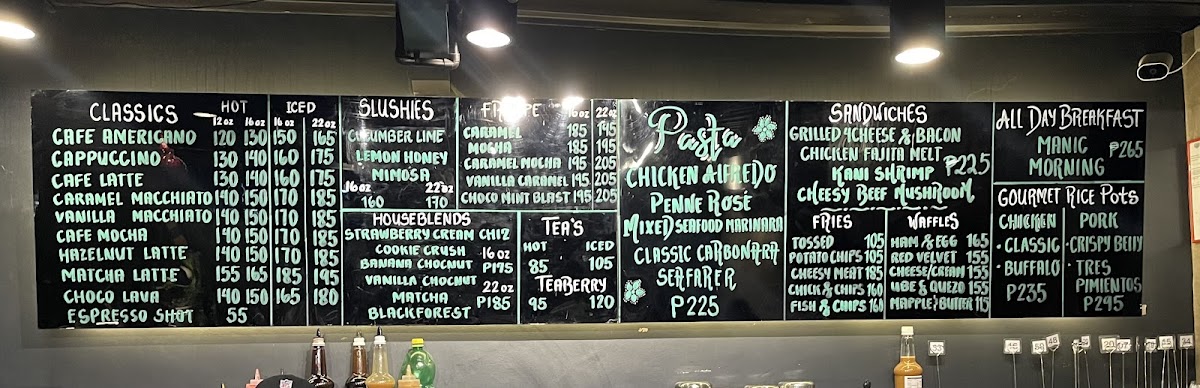 CLASSICS HOT ICED
12 oz 16 oz 16 oz 22 oz
CAFE AMERICANO 120 130 150 165
CAPPUCCINO 130 140 160 175
CAFE LATTE 130 140 160 175
CARAMEL MACCHIATO 140 150 170 185
VANILLA MACCHIATO 140 150 170 185
CAFE MOCHA 140 150 170 185
HAZELNUT LATTE 140 150 170 185
MATCHA LATTE 155 165 185 195
CHOCO LAVA 140 150 165 180
ESPRESSO SHOT 55
SLUSHIES
CUCUMBER LIME
LEMON HONEY
MIMOSA
16 oz 22 oz
160 170
FRAPPE 16 oz 22 oz
CARAMEL 185 195
MOCHA 185 195
CARAMEL MOCHA 195 205
VANILLA CARAMEL 195 205
CHOCO MINT BLAST 195 205
HOUSEBLENDS
STRAWBERRY CREAM CHIZ
COOKIE CRUSH 16 oz
BANANA CHOCNUT ₱175
VANILLA CHOCNUT 22 oz
MATCHA ₱185
BLACKFOREST
TEA'S
HOT ICED
85 105
TEABERRY
95 120
Pasta
CHICKEN ALFREDO
PENNE ROSÉ
MIXED SEAFOOD MARINARA
CLASSIC CARBONARA
SEAFARER
₱225
SANDWICHES
GRILLED 4CHEESE & BACON
CHICKEN FAJITA MELT
KANI SHRIMP ₱225
CHEESY BEEF MUSHROOM
FRIES
TOSSED 105
POTATO CHIPS 105
CHEESY MEAT 185
CHICK & CHIPS 160
FISH & CHIPS 160
WAFFLES
HAM & EGG 165
RED VELVET 155
CHEESE/CREAM 155
UBE & QUEZO 155
MAPPLE/BUTTER 115
ALL DAY BREAKFAST
MANIC
MORNING ₱265
GOURMET RICE POTS
CHICKEN
• CLASSIC
• BUFFALO
₱235
PORK
• CRISPY BELLY
• TRES
PIMIENTOS
₱295